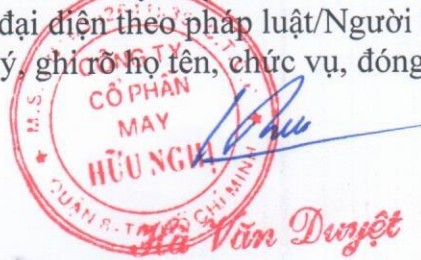 đại diện theo pháp luật/Người
ý, ghi rõ họ tên, chức vụ, đóng
CÔNG TY
CỔ PHẦN
MAY
HỮU NGHỊ
QUẬN 8 - T.P HỒ CHÍ MINH
Văn Duyệt